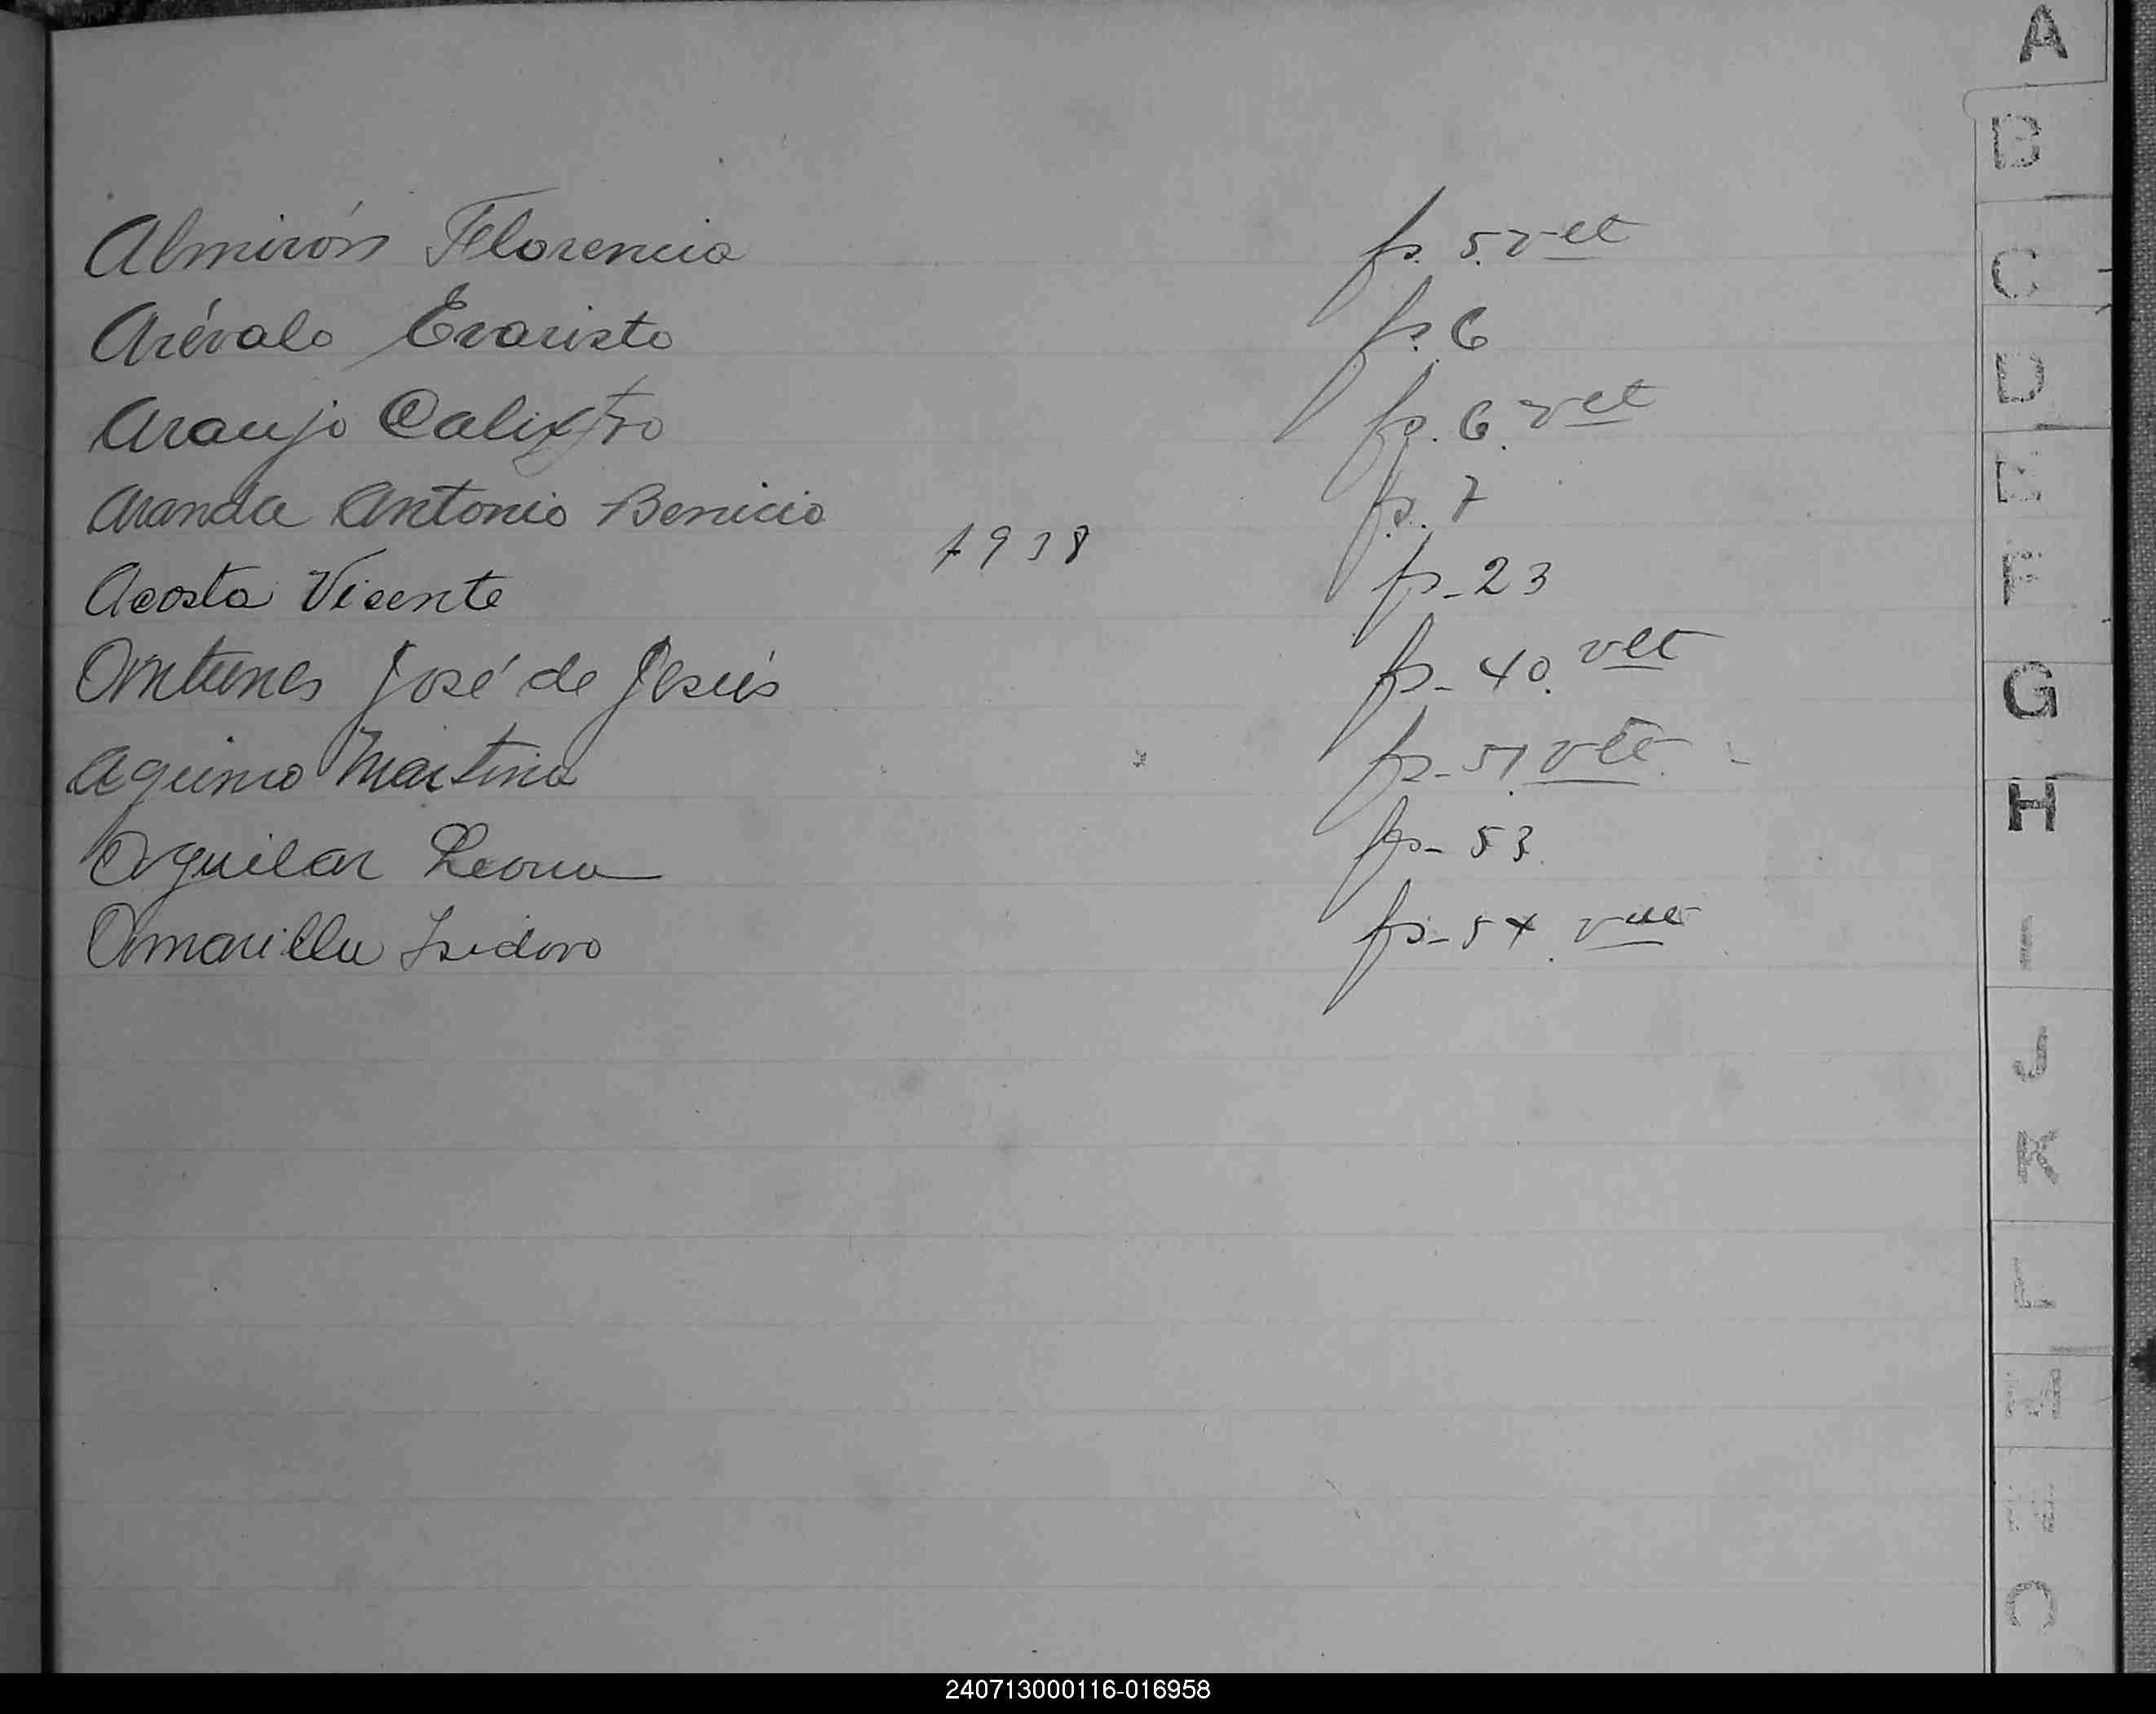 Almirón Florencia fs. 5. vlt
Arévalo Evaristo fs. 6
Araujo Calixtro fs. 6. vlt
Aranda Antonio Benicio fs. 7
1938
Acosta Vicente fs- 23
Antunes José de Jesús fs- 40. vlt
Aquino Martina fs- 51 vlt.
Aguilar Leona fs- 53.
Amarilla Isidoro fs- 54. vlt
A
B
C
D
E
F
G
H
I
J
K
L
240713000116-016958